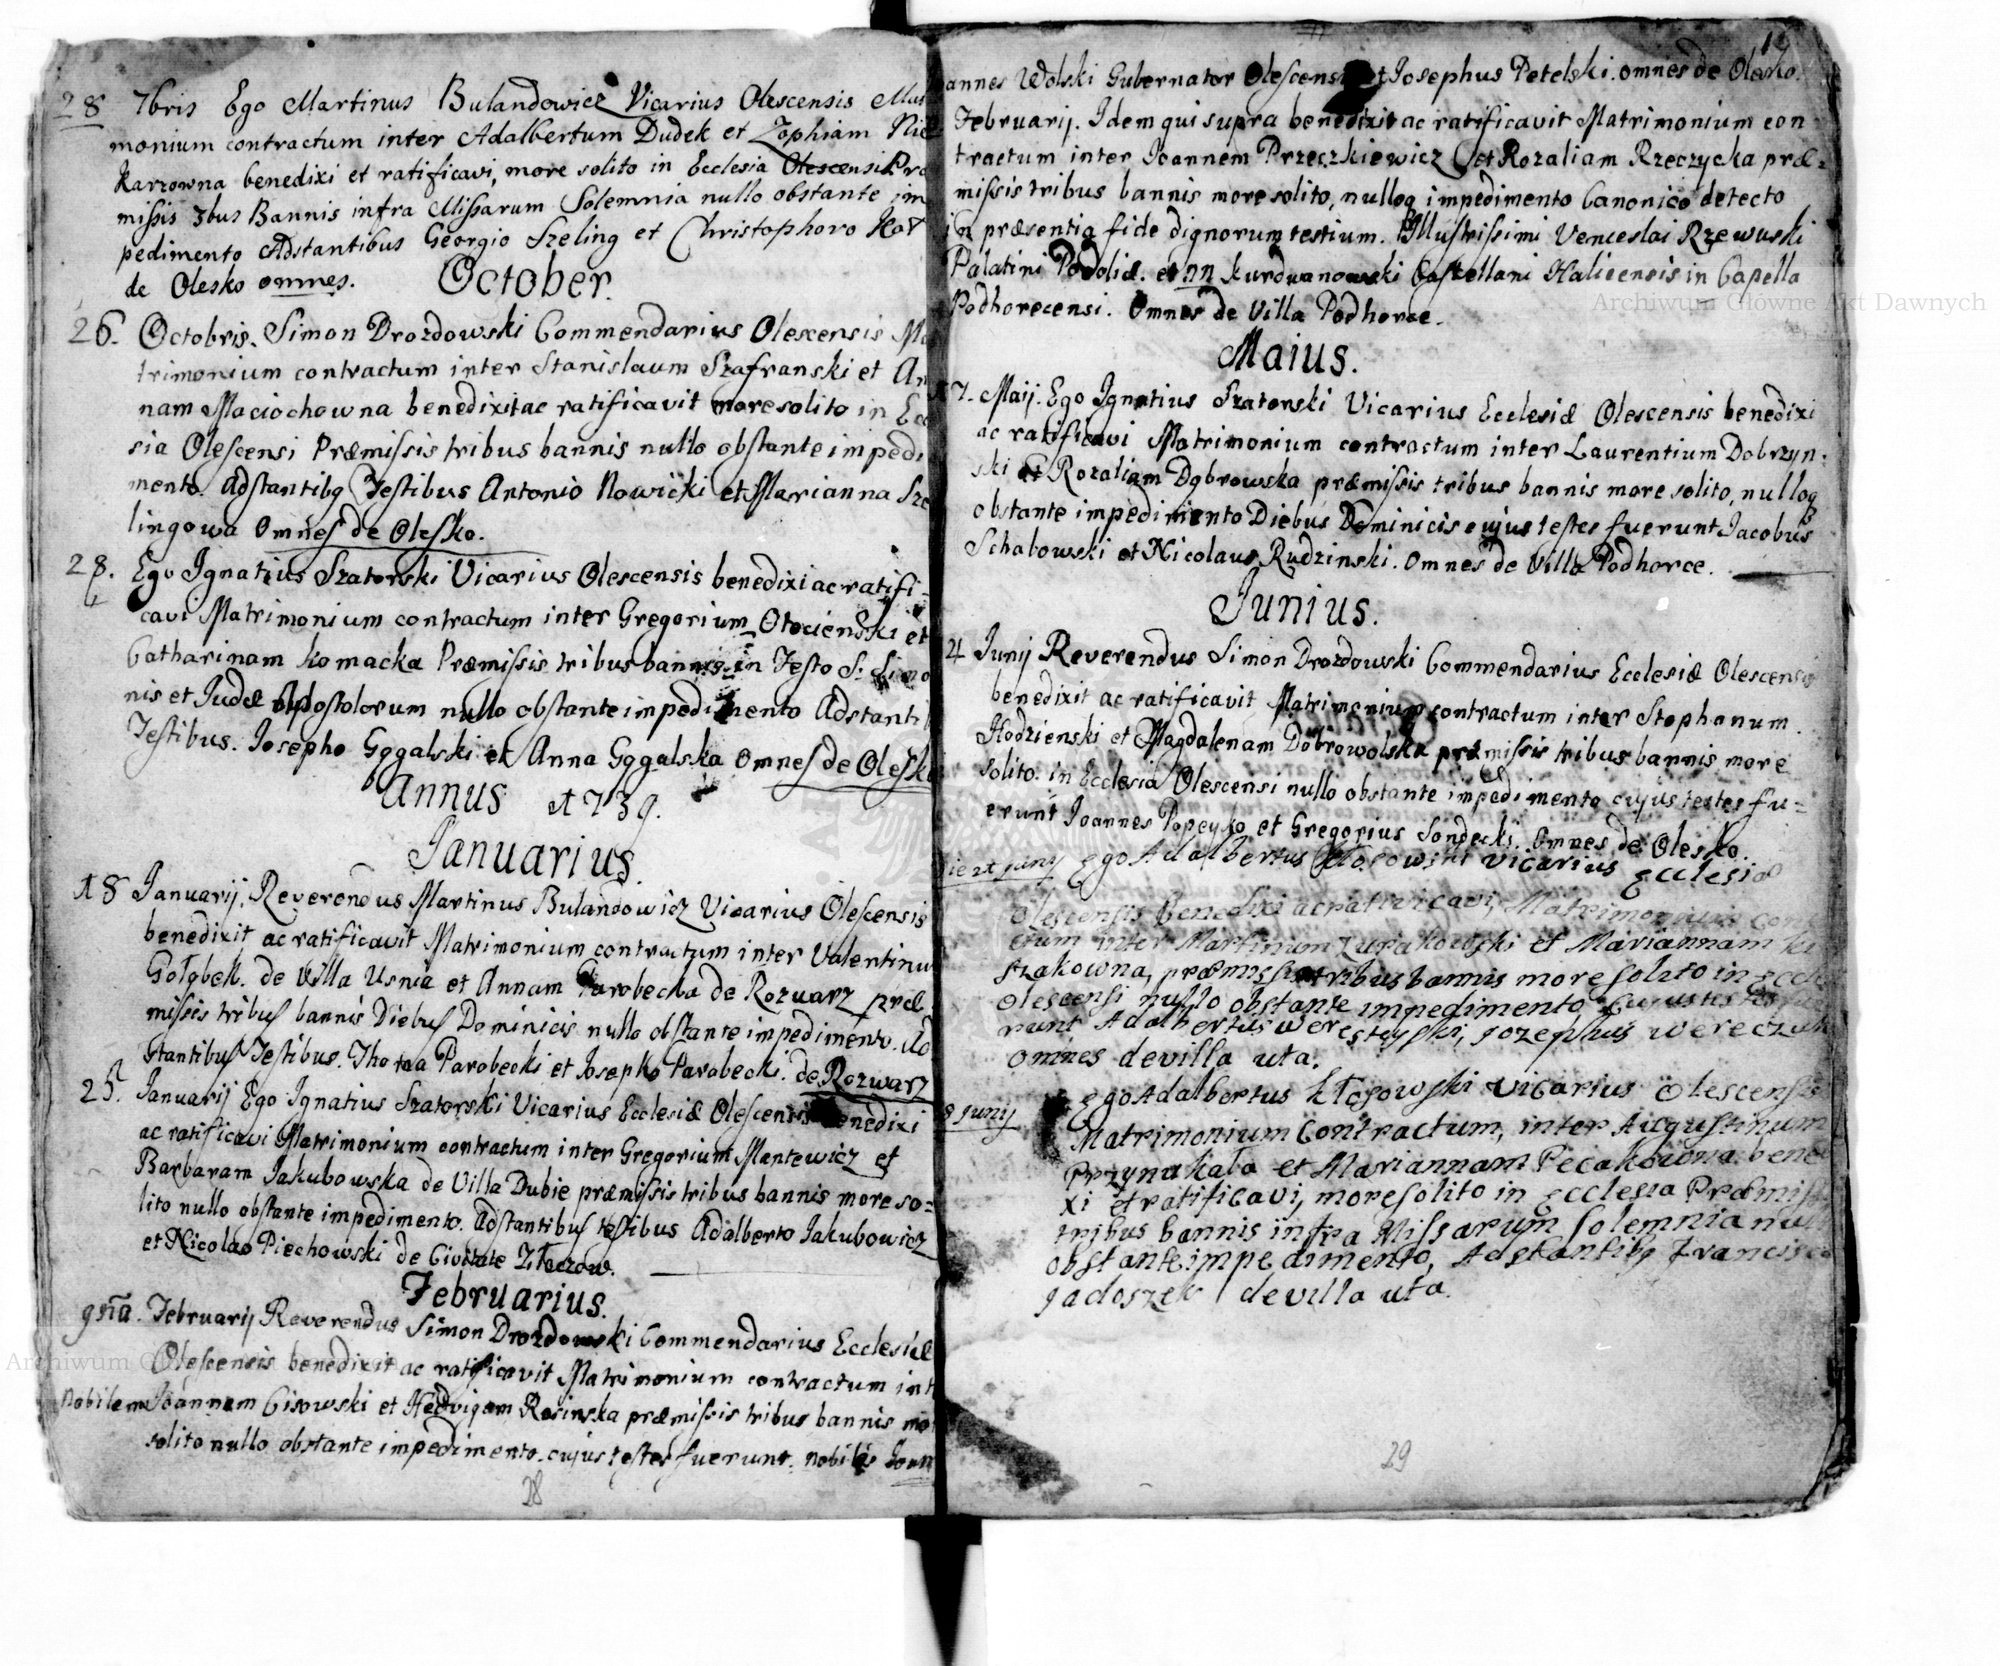 28 7bris Ego Martinus Bulandowicz Vicarius Olescensis Mat
monium contractum inter Adalbertum Dudek et Zophiam Nie
karzowna benedixi et ratificavi, more solito in Ecclesia Olescensi Præ
missis 3bus Bannis infra Missarum Solemnia nullo obstante im
pedimento Adstantibus Georgio Szeling et Christophoro
de Olesko omnes.
October.
26. Octobris. Simon Drozdowski Commendarius Olescensis Ma
trimonium contractum inter Stanislaum Szafranski et An
nam Maciochowna benedixit ac ratificavit more solito in Eccl
sia Olescensi Præmissis tribus bannis nullo obstante impedi
mento. Adstantibq Testibus Antonio Nowicki et Marianna Sze
lingowa Omnes de Olesko.
28. Ego Ignatius Szatorski Vicarius Olescensis benedixi ac ratifi-
cavi Matrimonium contractum inter Gregorium Otocienski et
Catharinam Komacka Præmissis tribus bannis in Festo S: Simo
nis et Judæ Apostolorum nullo obstante impedimento Adstanti
Testibus. Josepho Gągalski et Anna Gągalska Omnes de Olesko
Annus 1739.
Januarius.
18 Januarij. Reverendus Martinus Bulandowicz Vicarius Olescensis
benedixit ac ratificavit Matrimonium contractum inter Valentinu
Gołąbek. de Villa Usnia et Annam Parobecka de Rozuarz præ
missis tribus bannis Diebus Dominicis nullo obstante impedimento. Ad
stantibus Testibus. Thoma Parobecki et Josepho Parobecki. de Rozwarz
25. Januarij Ego Ignatius Szatorski Vicarius Ecclesiæ Olescensis benedixi
ac ratificavi Matrimonium contractum inter Gregorium Mantewicz et
Barbaram Jakubowska de Villa Dubie præmissis tribus bannis more so=
lito nullo obstante impedimento. Adstantibus testibus Adalberto Jakubowicz
et Nicolao Piechowski de Civitate Złoczow.
Februarius.
9na. Februarij Reverendus Simon Drozdowski Commendarius Ecclesiæ
Olescensis benedixit ac ratificavit Matrimonium contractum int
Nobilem Joannem Cisowski et Hedvigam Rosinska præmissis tribus bannis mo
solito nullo obstante impedimento. cujus testes fuerunt. nobilis Joan
28
annes Wolski Gubernator Olescensis et Josephus Petelski. omnes de Olesko.
Februarij. Idem qui supra benedixit ac ratificavit Matrimonium con
tractum inter Joannem Przeczkiewicz et Rozaliam Rzeczycka præ=
missis tribus bannis more solito, nulloq impedimento Canonico detecto
in præsentia fide dignorum testium. Illustrissimi Venceslai Rzewuski
Palatini Podoliæ. et nn Kurdwanowski Castellani Halicensis in Capella
Podhorecensi. Omnes de Villa Podhorce.
Maius.
17. Maij. Ego Ignatius Szatorski Vicarius Ecclesiæ Olescensis benedixi
ac ratificavi Matrimonium contractum inter Laurentium Dobrzyn=
ski et Rozaliam Dąbrowska præmissis tribus bannis more solito, nulloq
obstante impedimento Diebus Dominicis cujus testes fuerunt Jacobus
Schabowski et Nicolaus Rudzinski. Omnes de Villa Podhorce.
Junius.
Junij Reverendus Simon Drozdowski Commendarius Ecclesiæ Olescensis
benedixit ac ratificavit Matrimonium contractum inter Stephanum
Hodzienski et Magdalenam Dobrowolska præmissis tribus bannis more
solito. in Ecclesia Olescensi nullo obstante impedimento cujus testes fu=
erunt Joannes Popeyko et Gregorius Sondecki. Omnes de Olesko.
Juny Ego Adalbertus Kłosowski Vicarius Ecclesiæ
Olescensis Benedixi ac ratificavi, Matrimonium con
ctum inter Martinum Zurakowski et Mariannam
szakowna, præmissis tribus bannis more solito in Eccle
Olescensi nullo obstante impedimento, Cuius testes fue
runt Adalbertus Wereszczynski, Jozephus Wereczuk
omnes de villa uta.
8 Juny Ego Adalbertus Kłosowski Vicarius Olescensis
Matrimonium Contractum, inter Augustinum
Przynukała et Mariannam Pecakowna bene
xi et ratificavi, more solito in Ecclesia Præmiss
tribus bannis infra Missarum solemnia null
obstante impedimento, Adstantibq Francisco
Jadoszek de villa uta.
29
Archiwum Główne Akt Dawnych